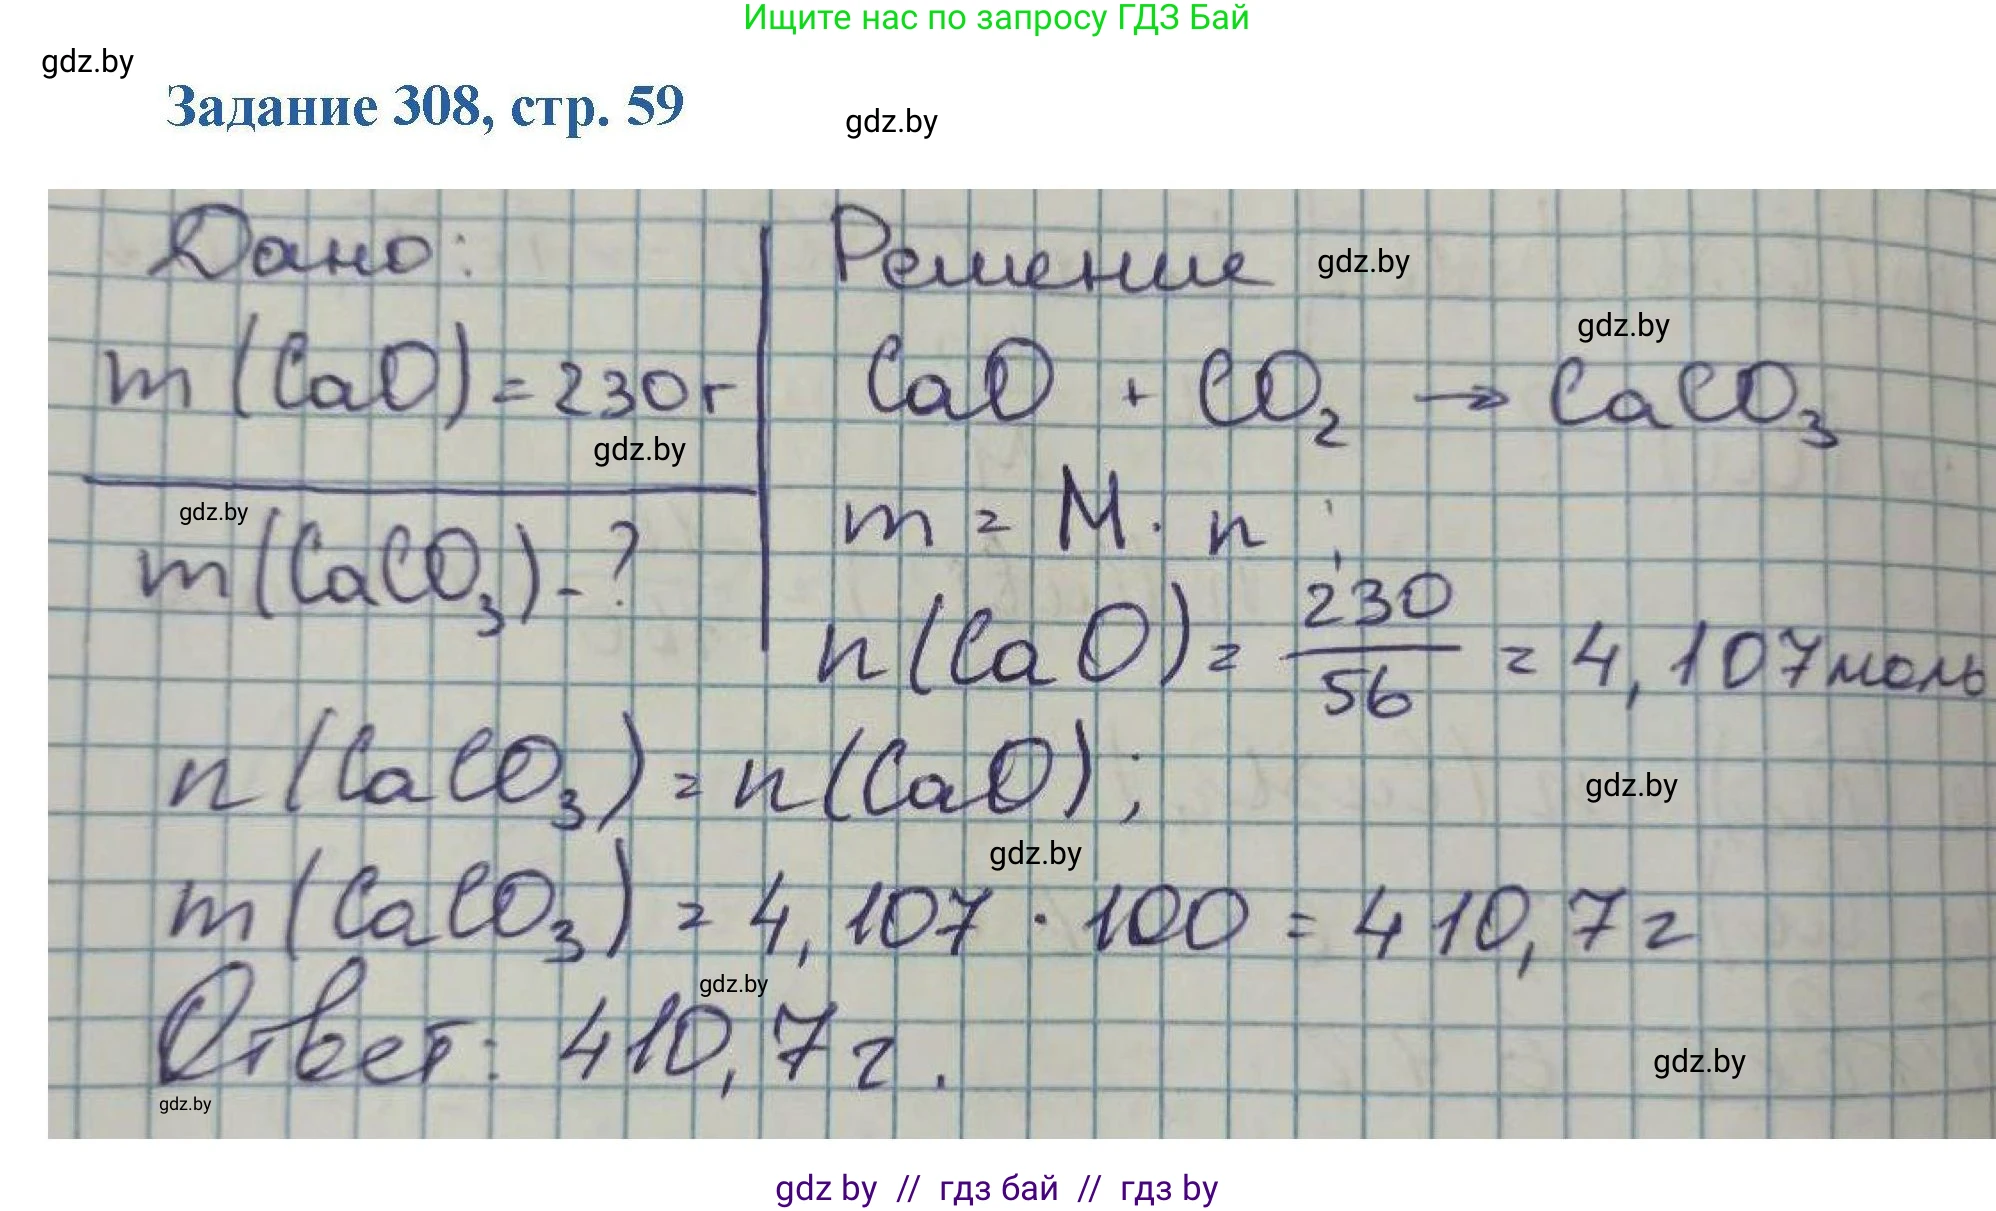 Ищите нас по запросу ГДЗ Бай
gdz.by
Задание 308, стр. 59
gdz.by
Дано:
m(CaO) = 230 г
gdz.by
gdz.by
m(CaCO₃) - ?
Решение
gdz.by
gdz.by
CaO + CO₂ → CaCO₃
m = M · n;
n(CaO) = 230/56 = 4,107 моль
n(CaCO₃) = n(CaO);
gdz.by
gdz.by
m(CaCO₃) = 4,107 · 100 = 410,7 г
gdz.by
Ответ: 410,7 г.
gdz.by
gdz.by
gdz by // гдз бай // гдз by